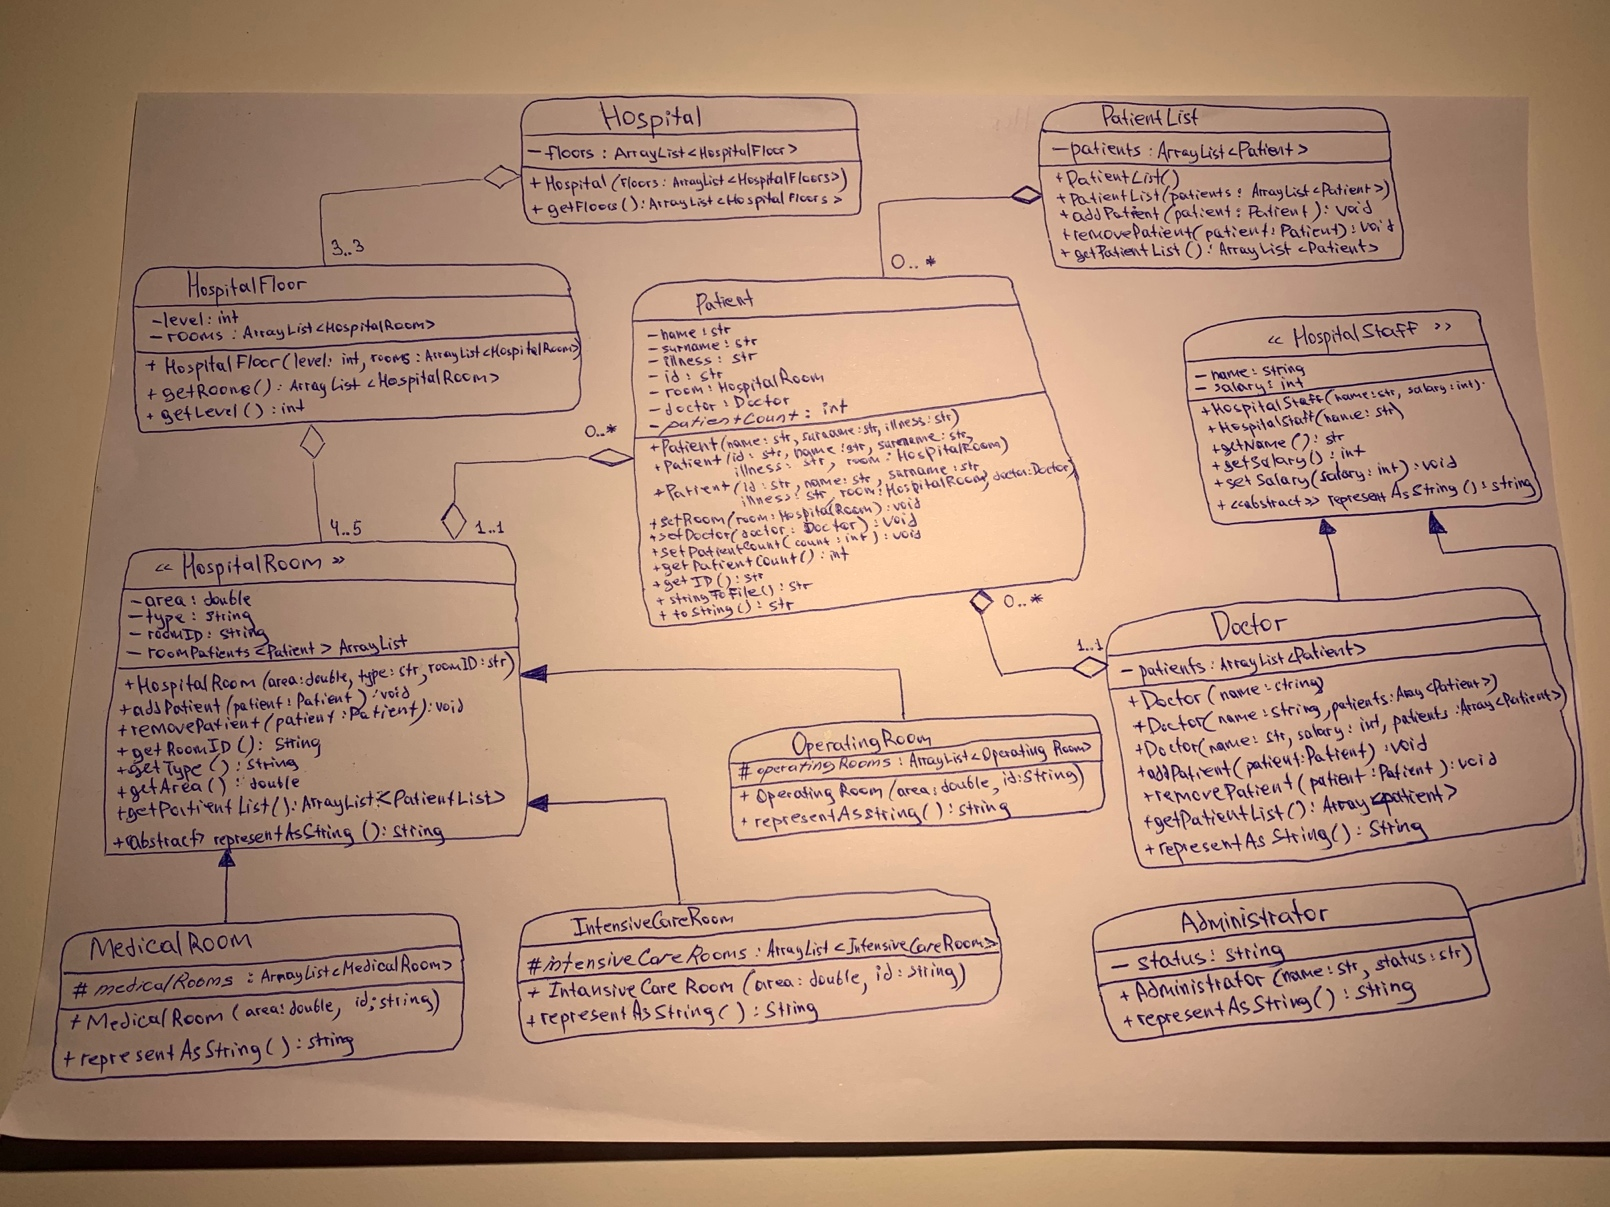 Hospital
- floors : ArrayList<HospitalFloor>
+ Hospital (floors: ArrayList<HospitalFloors>)
+ getFloors(): ArrayList<HospitalFloors>
PatientList
- patients : ArrayList<Patient>
+ PatientList()
+ PatientList(patients : ArrayList<Patient>)
+ addPatient (patient : Patient) : void
+ removePatient(patient : Patient) : void
+ getPatientList() : ArrayList<Patient>
3..3
0..*
HospitalFloor
- level : int
- rooms : ArrayList<HospitalRoom>
+ HospitalFloor(level: int, rooms : ArrayList<HospitalRoom>)
+ getRooms() : ArrayList <HospitalRoom>
+ getLevel() : int
Patient
- name : str
- surname : str
- illness : str
- id : str
- room : HospitalRoom
- doctor : Doctor
- patientCount : int
+ Patient (name: str, surname: str, illness: str)
+ Patient (id : str, name : str, surename : str,
illness : str, room : HospitalRoom)
+ Patient (id : str, name: str, surname : str,
illness : str, room : HospitalRoom, doctor: Doctor)
+ setRoom (room: HospitalRoom) : void
+ setDoctor (doctor : Doctor) : void
+ setPatientCount( count : int ) : void
+ getPatientCount() : int
+ getID() : str
+ stringToFile() : str
+ toString() : str
<< HospitalStaff >>
- name : string
- salary : int
+ HospitalStaff(name: str, salary: int).
+ HospitalStaff (name : str)
+ getName () : str
+ getSalary () : int
+ setSalary (salary : int) : void
+ <<abstract>> representAsString () : string
0..*
4..5
1..1
<< HospitalRoom >>
- area : double
- type : String
- roomID : String
- roomPatients <Patient > ArrayList
+ HospitalRoom (area: double, type: str, roomID : str)
+ addPatient (patient : Patient) : void
+ removePatient (patient : Patient) : void
+ getRoomID () : String
+ getType () : String
+ getArea () : double
+ getPatient List () : ArrayList <PatientList>
+ <abstract> representAsString () : String
0..*
1..1
Doctor
- patients : ArrayList<Patient>
+ Doctor (name : string)
+ Doctor( name : string, patients : Array <Patient>)
+ Doctor(name : str, salary : int, patients : Array<Patient>)
+ addPatient (patient:Patient) : void
+ removePatient (patient : Patient) : void
+ getPatientList() : Array<patient>
+ representAsString() : String
OperatingRoom
# operatingRooms : ArrayList<Operating Room>
+ Operating Room (area : double, id : String)
+ representAsString() : string
MedicalRoom
# medicalRooms : ArrayList<MedicalRoom>
+ MedicalRoom ( area: double, id ; string)
+ representAsString() : string
IntensiveCareRoom
# intensiveCareRooms : ArrayList <IntensiveCareRoom>
+ Intansive Care Room (area : double, id : string)
+ representAsString() : String
Administrator
- status : string
+ Administrator (name : str, status : str)
+ representAsString() : String